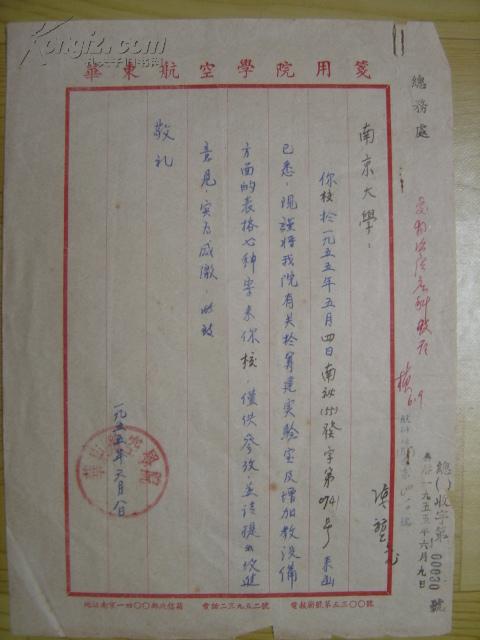 華東航空學院用箋
總務處
南京大學：
你校於一九五五年五月四日南祕(55)發字第0741号来函
已悉，現謹将我院有关於筹建实驗室及增加教設備
方面的表格七种寄来你校，僅供參攷，並请提出改進
意見，实为感激，此致
敬礼
一九五五年六月八日
6.9
總( )收字第00030號
一九五五年六月九日
地址南京一四〇〇郵政信箱
電話二三九五二號
電報掛號第五三〇〇號
kongfz.com